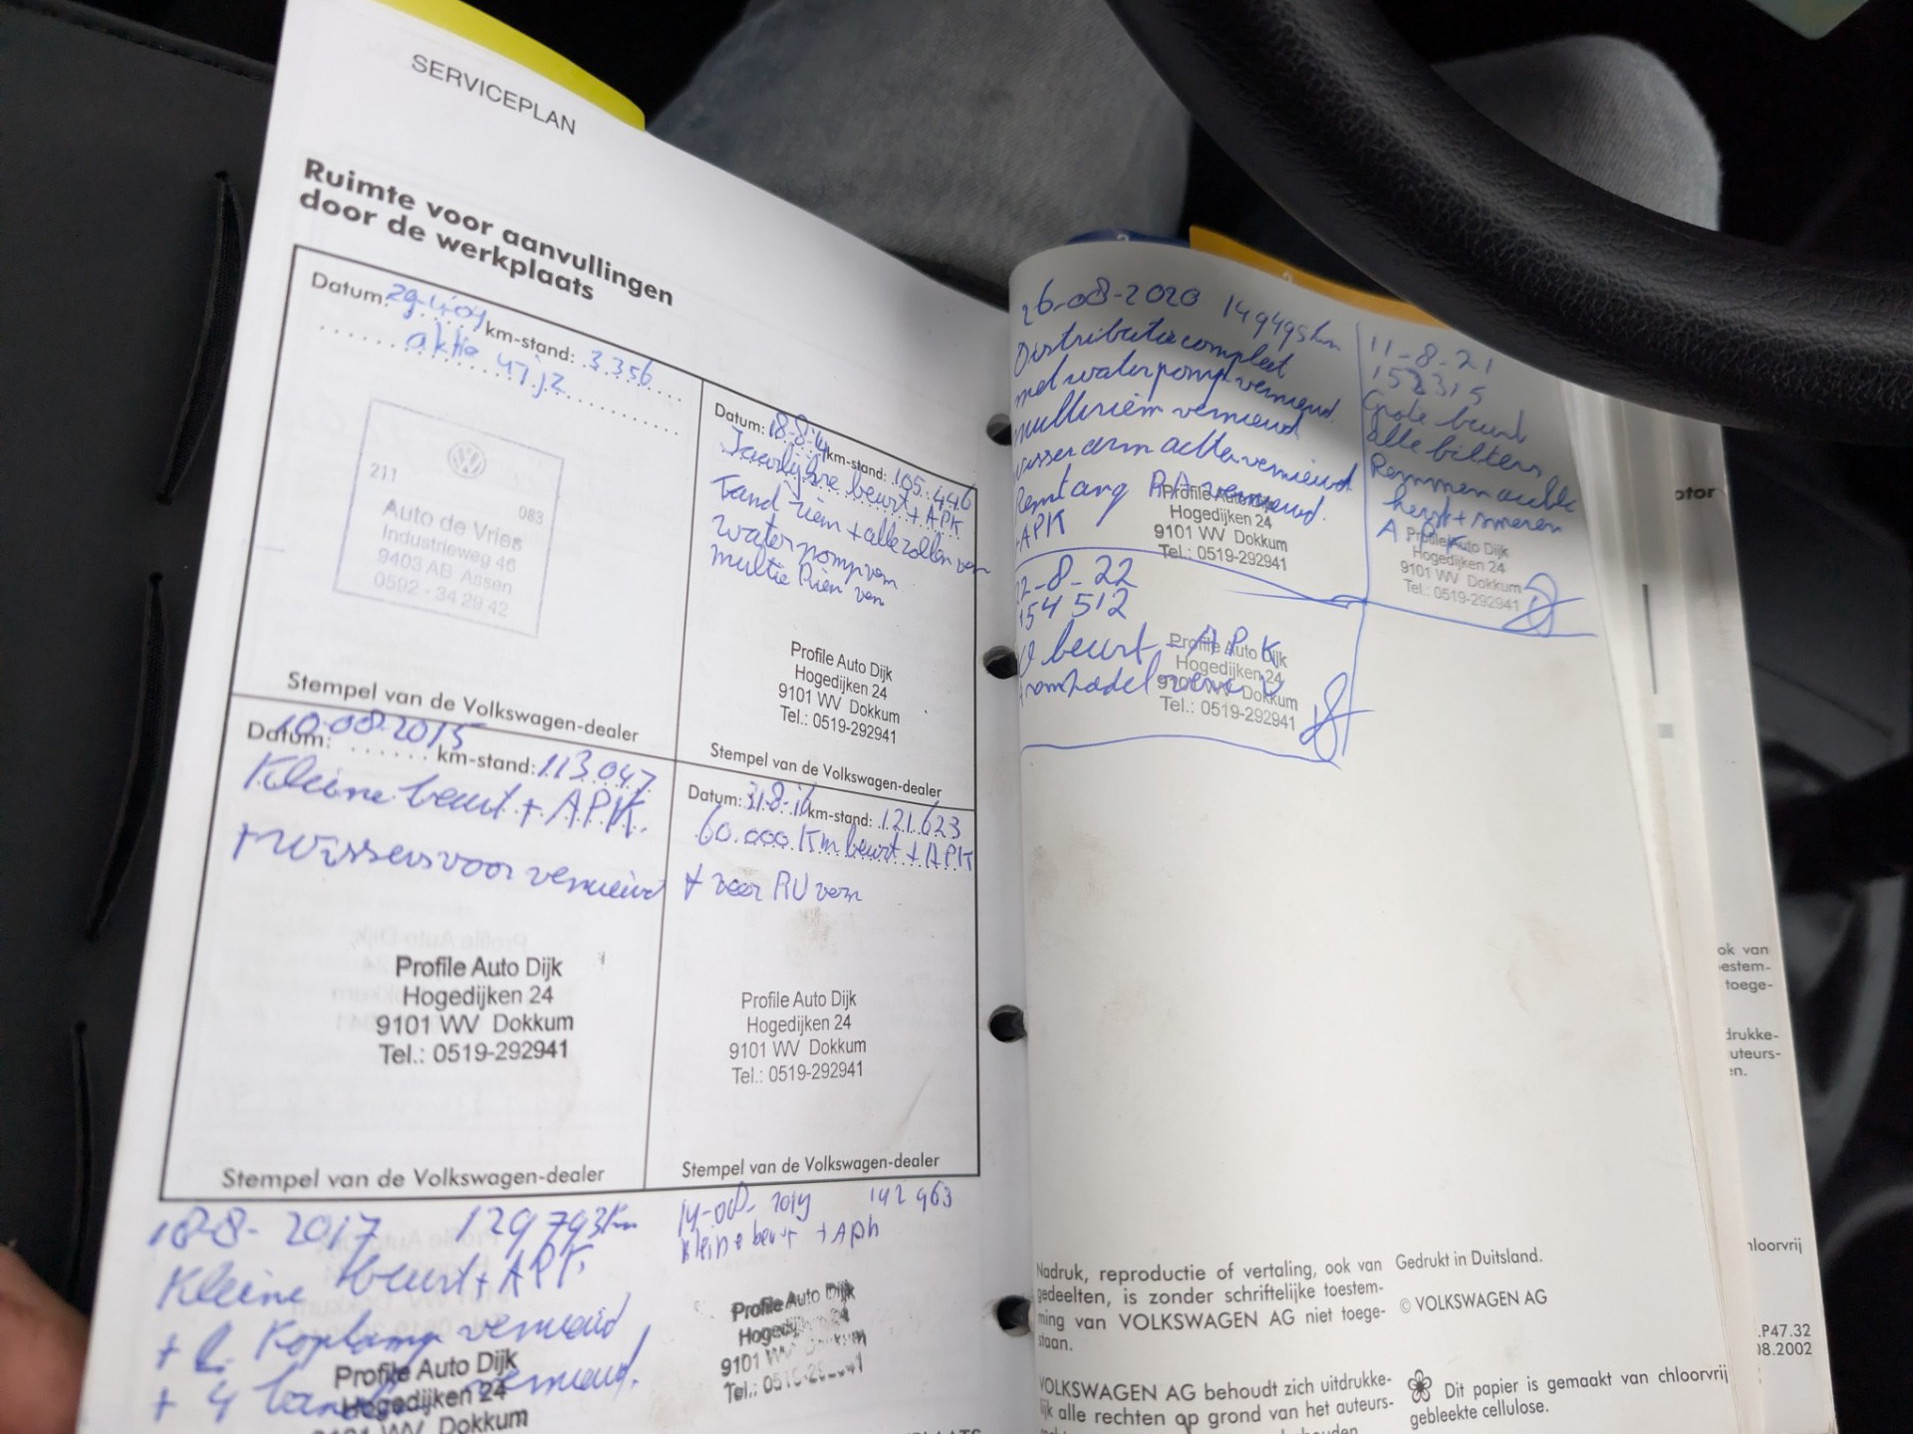 SERVICEPLAN
Ruimte voor aanvullingen
door de werkplaats
Datum: 29-4-04 km-stand: 3.356
aktie 47j2
211
083
Auto de Vries
Industrieweg 46
9403 AB Assen
0592 - 34 29 42
Stempel van de Volkswagen-dealer
Datum: 18-8-14 km-stand: 105.446
Jaarlijkse beurt + APK
Tand riem + alle rollen ver
waterpomp ver
multie Riem ver
Profile Auto Dijk
Hogedijken 24
9101 WV Dokkum
Tel.: 0519-292941
Stempel van de Volkswagen-dealer
Datum: 10-08-2015
km-stand: 113.047
Kleine beurt + APK.
+ wissers voor vernieuwd
Profile Auto Dijk
Hogedijken 24
9101 WV Dokkum
Tel.: 0519-292941
Stempel van de Volkswagen-dealer
Datum: 31-8-16 km-stand: 121.623
60.000 Km beurt + APK
+ veer RV vern
Profile Auto Dijk
Hogedijken 24
9101 WV Dokkum
Tel.: 0519-292941
Stempel van de Volkswagen-dealer
18-8-2017 129793km
Kleine beurt + APK
+ L. Koplamp vernieuwd
+ 4 banden vernieuwd.
Profile Auto Dijk
Hogedijken 24
9101 WV Dokkum
14-08-2019 142963
kleine beurt + APK
Profile Auto Dijk
Hogedijken 24
9101 WV Dokkum
Tel.: 0519-292941
26-08-2020 149495km
Distributie compleet
met waterpomp vernieuwd
multieriem vernieuwd
wisser arm achter vernieuwd
Remtang RA vernieuwd.
+APK
Profile Auto Dijk
Hogedijken 24
9101 WV Dokkum
Tel.: 0519-292941
11-8-21
Grote beurt
alle filters
Remmen achter
APK
Profile Auto Dijk
Hogedijken 24
9101 WV Dokkum
Tel.: 0519-292941
22-8-22
154512
beurt - APK
Profile Auto Dijk
Hogedijken 24
9101 WV Dokkum
Tel.: 0519-292941
Nadruk, reproductie of vertaling, ook van
gedeelten, is zonder schriftelijke toestem-
ming van VOLKSWAGEN AG niet toege-
staan.
VOLKSWAGEN AG behoudt zich uitdrukke-
lijk alle rechten op grond van het auteurs-
Gedrukt in Duitsland.
© VOLKSWAGEN AG
Dit papier is gemaakt van chloorvrij
gebleekte cellulose.
otor
ok van
estem-
toege-
drukke-
uteurs-
en.
hloorvrij
.P47.32
08.2002